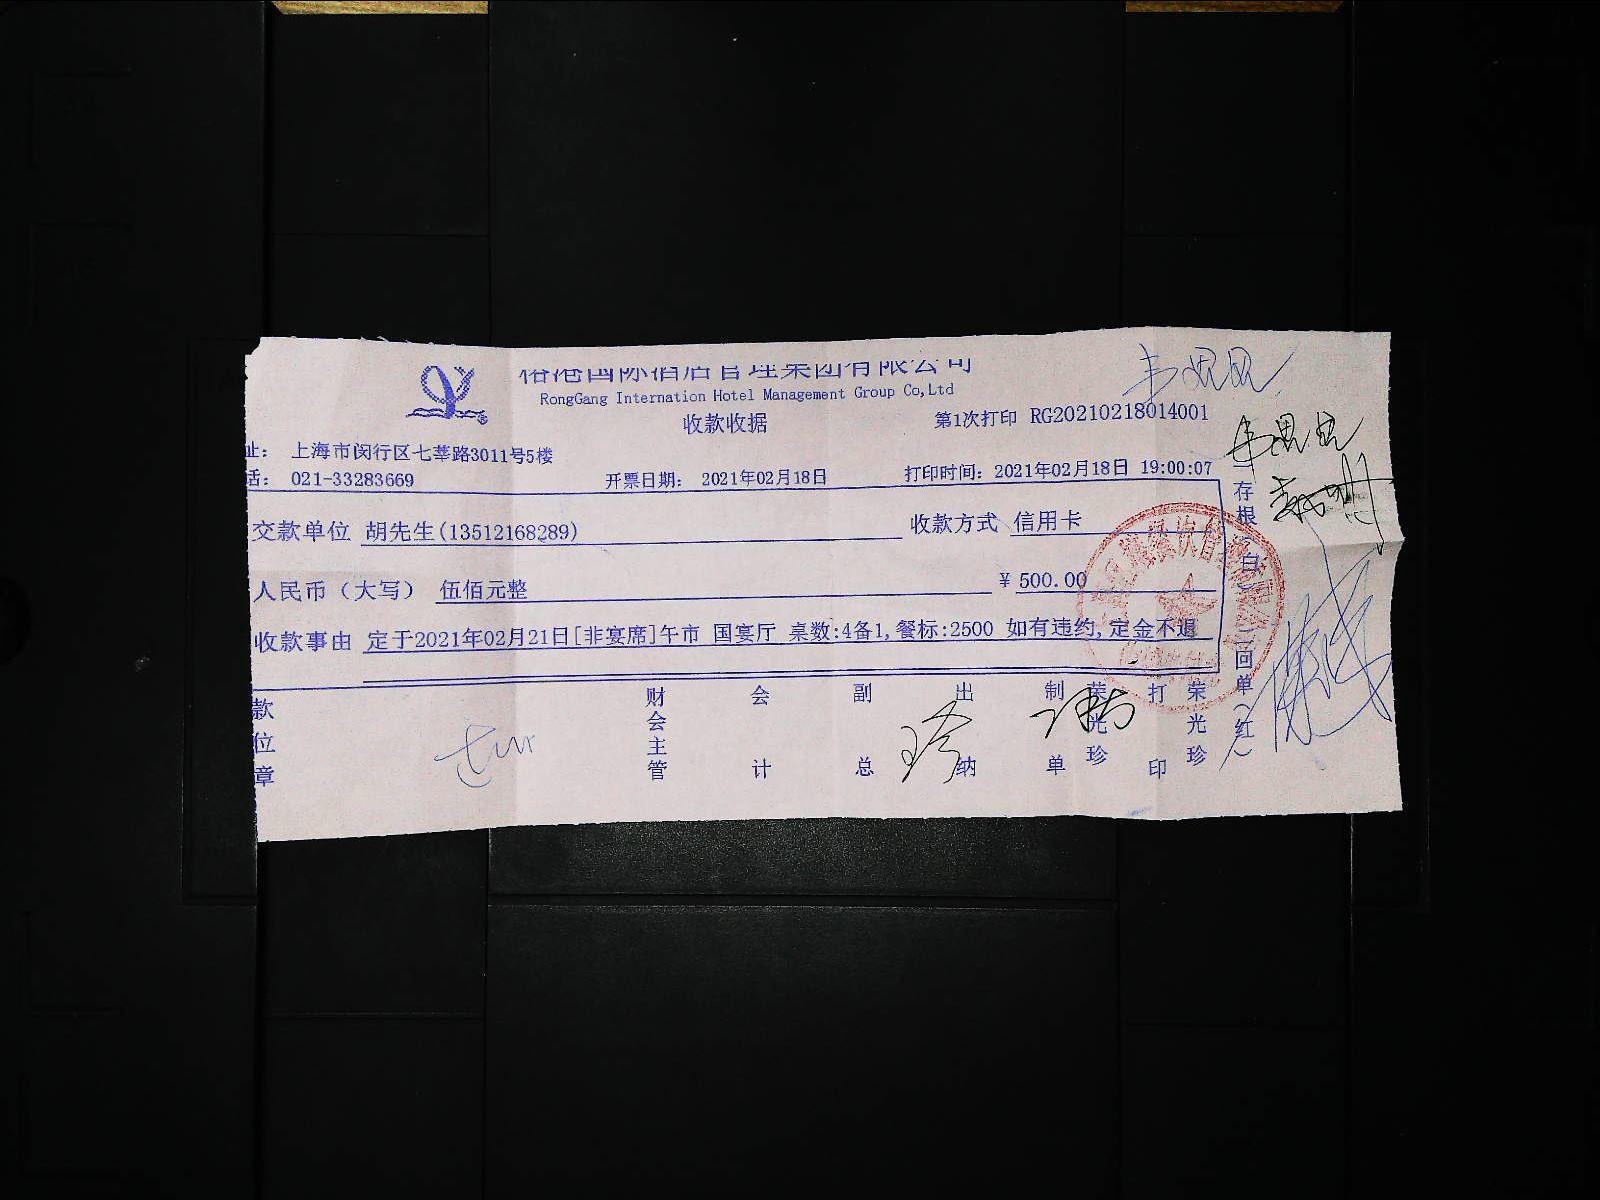 国际酒店管理集团有限公司
RongGang Internation Hotel Management Group Co,Ltd
收款收据
第1次打印 RG20210218014001
址： 上海市闵行区七莘路3011号5楼
话： 021-33283669
开票日期： 2021年02月18日
打印时间： 2021年02月18日 19:00:07
交款单位 胡先生(13512168289)
收款方式 信用卡
人民币（大写） 伍佰元整
¥ 500.00
收款事由 定于2021年02月21日[非宴席]午市 国宴厅 桌数:4备1,餐标:2500 如有违约,定金不退
款位章
财会主管
会计
副总
出纳
制单
荣光珍
打印
荣光珍
存根（白）
回单（红）